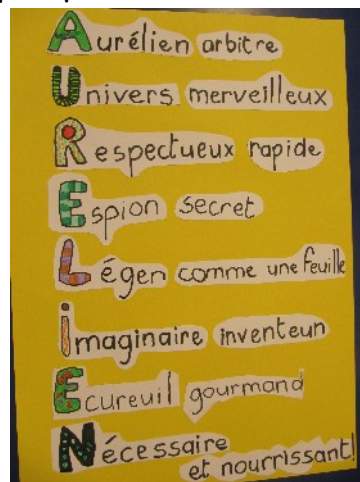 Aurélien arbitre
Univers merveilleux
Respectueux rapide
Espion secret
Léger comme une feuille
Imaginaire inventeur
Ecureuil gourmand
Nécessaire
et nourrissant!